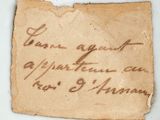 Tasse ayant
appartenu au
roi d'Annam